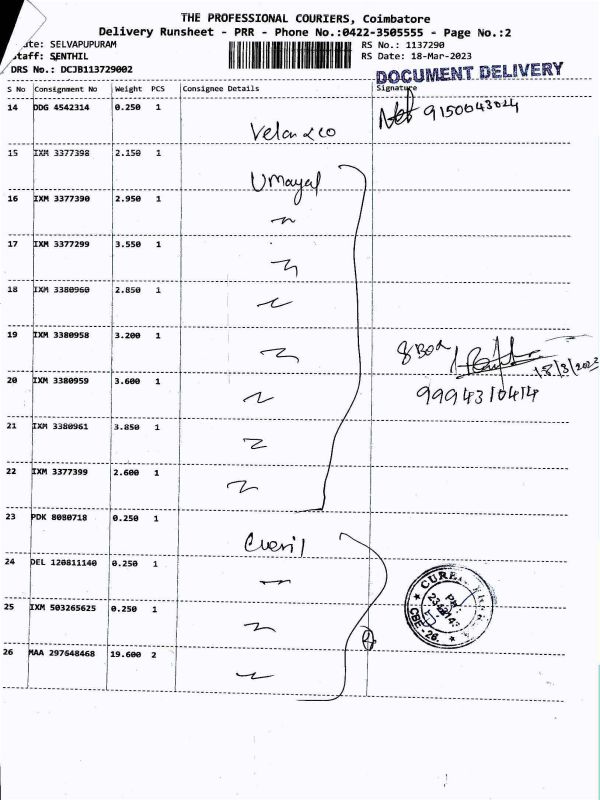 THE PROFESSIONAL COURIERS, Coimbatore
Delivery Runsheet - PRR - Phone No.:0422-3505555 - Page No.:2
SELVAPUPURAM
RS No.: 1137290
Staff: SENTHIL
RS Date: 18-Mar-2023
DRS No.: DCJB113729002
DOCUMENT DELIVERY
S No Consignment No Weight PCS Consignee Details Signature
14 DDG 4542314 0.250 1 9150043024
Velan & co
15 IXM 3377398 2.150 1
Umayal
16 IXM 3377390 2.950 1
17 IXM 3377299 3.550 1
18 IXM 3380960 2.850 1
19 IXM 3380958 3.200 1
18/3/2023
20 IXM 3380959 3.600 1
9994310414
21 IXM 3380961 3.850 1
22 IXM 3377399 2.600 1
23 PDK 8080718 0.250 1
24 DEL 120811140 0.250 1
25 IXM 503265625 0.250 1
CBE-26
26 MAA 297648468 19.600 2